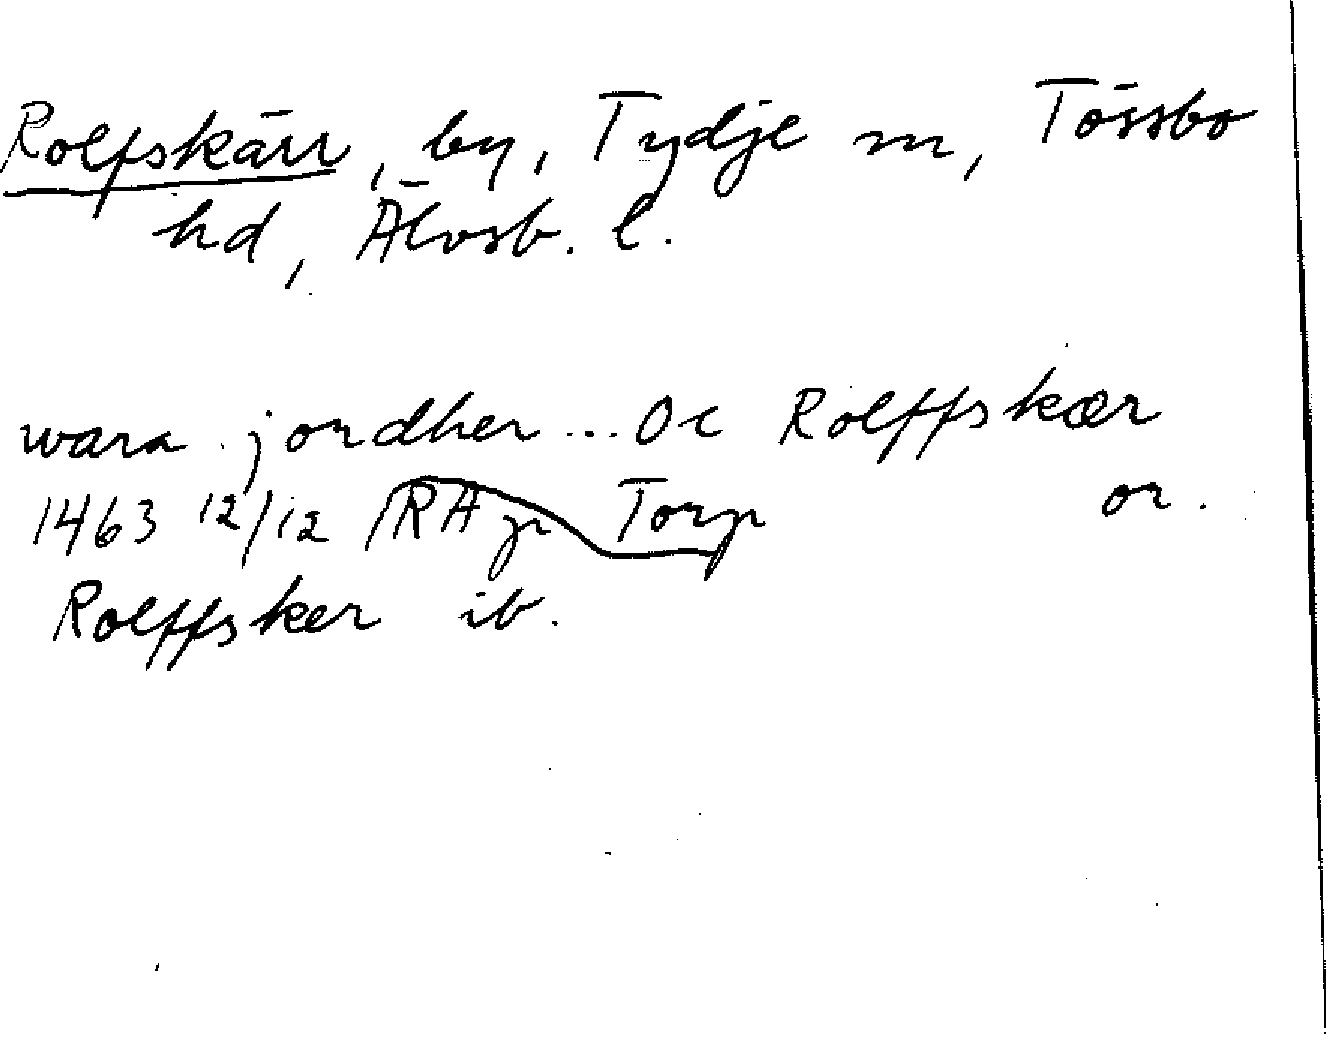 Rolfskärr, by, Tydje sn, Tössbo
hd, Älvsb. l.
wara jordher ... Oc Rolffskær
1463 12/12 RA p Torp or.
Rolffsker ib.